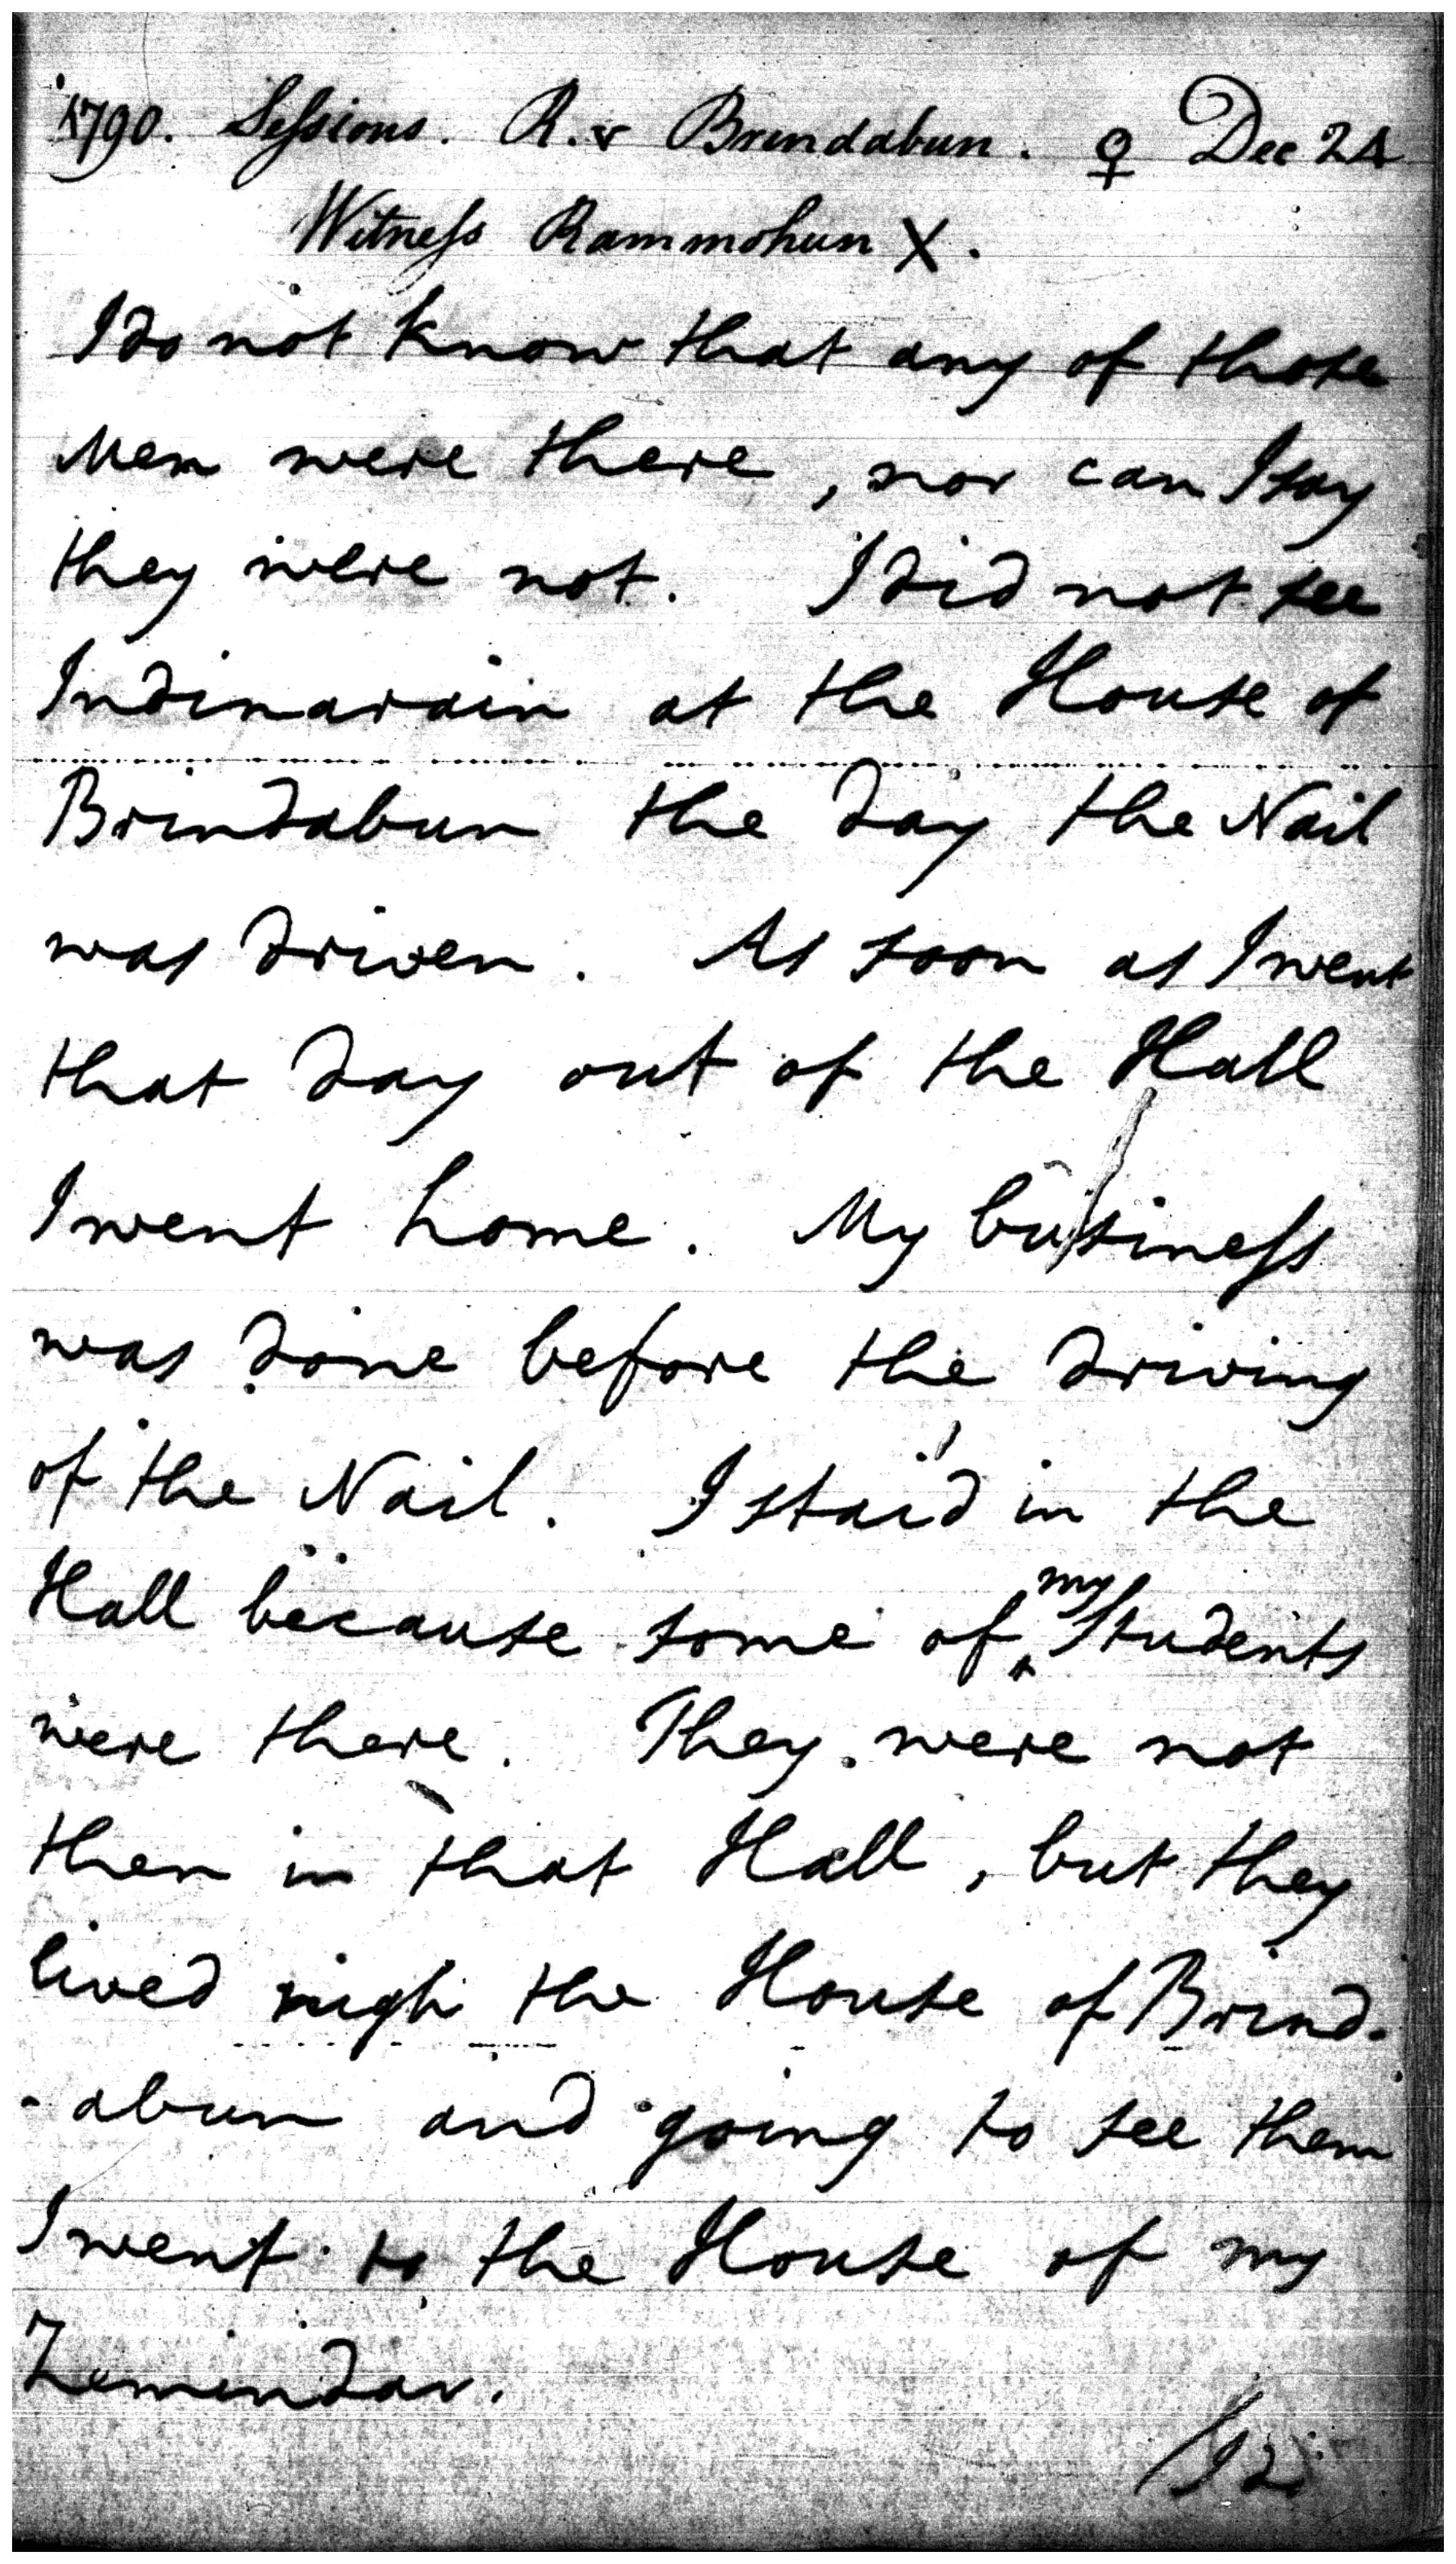 1790. Sessions. R. v Brindabun. ♀ Dec 24
Witness Rammohun X.
I do not know that any of those
Men were there, nor can I say
they were not. I did not see
Indinarain at the House of
Brindabun the day the Nail
was driven. As soon as I went
that day out of the Hall
I went home. My business
was done before the driving
of the Nail. I staid in the
Hall because some of my Students
were there. They were not
then in that Hall, but they
lived nigh the House of Brind-
-abun and going to see them
I went to the House of my
Zemindar.